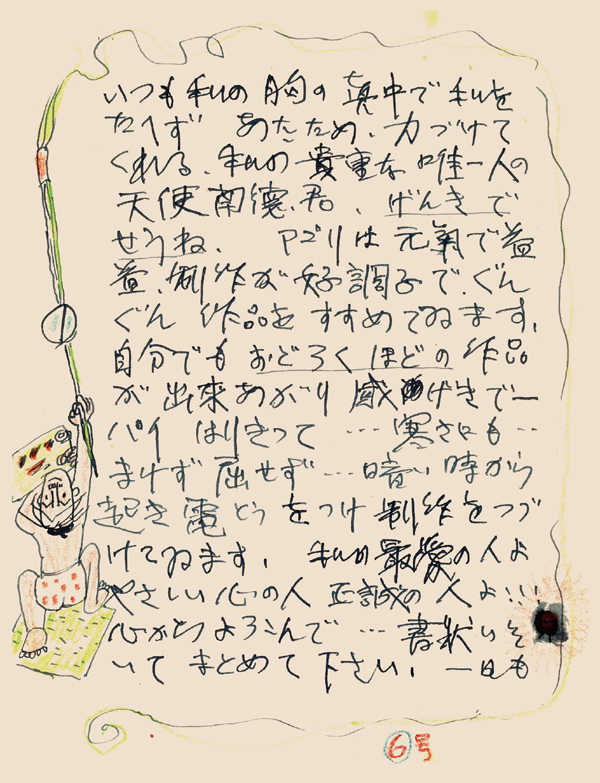 いつも私の胸の真中で私を
たへず あたため、力づけて
くれる、私の貴重な唯一人の
天使南德君、げんきで
せうね、 アゴリは元氣で益
益、制作が好調子で、ぐん
ぐん 作品を すすめてゐます、
自分でも おどろくほどの 作品
が 出来あがり 感げきで一
パイ はりきって …寒さにも…
まけず 屈せず…暗い時から
起き 電どうをつけ制作をつづ
けてゐます、 私の最愛の人よ
やさしい心の人 正誠の人よ…
心からよろこんで… 書状いそ
いて まとめて 下さい、 一日も
6号